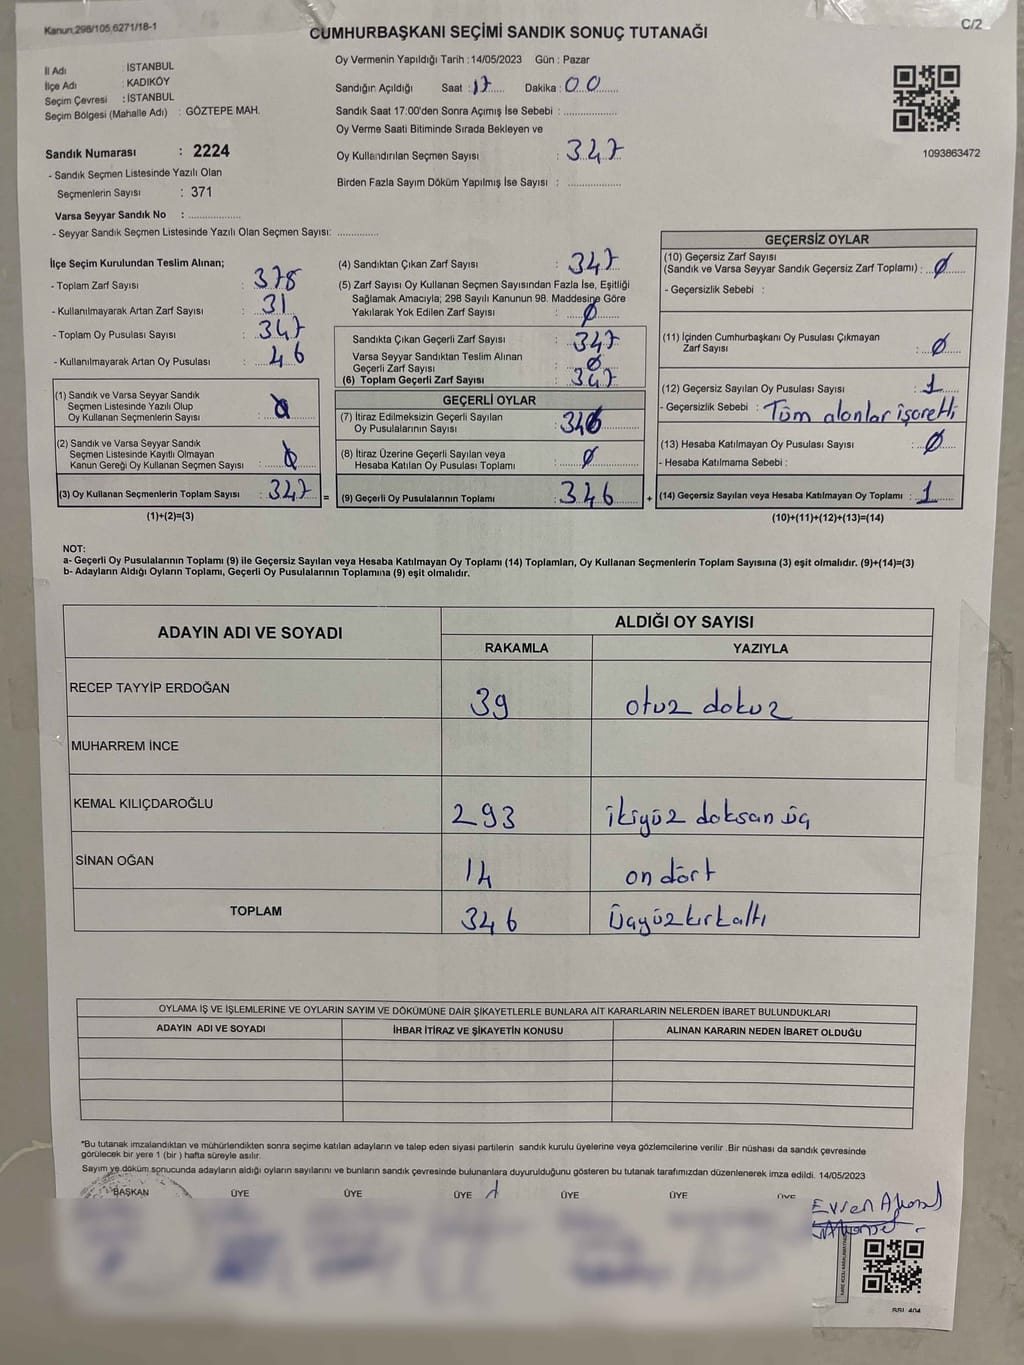 Kanun:298/105,6271/18-1
C/2
CUMHURBAŞKANI SEÇİMİ SANDIK SONUÇ TUTANAĞI
İl Adı : İSTANBUL
İlçe Adı : KADIKÖY
Seçim Çevresi : İSTANBUL
Seçim Bölgesi (Mahalle Adı) : GÖZTEPE MAH.
Sandık Numarası : 2224
- Sandık Seçmen Listesinde Yazılı Olan
Seçmenlerin Sayısı : 371
Varsa Seyyar Sandık No : ..................
- Seyyar Sandık Seçmen Listesinde Yazılı Olan Seçmen Sayısı: ..............
Oy Vermenin Yapıldığı Tarih : 14/05/2023 Gün : Pazar
Sandığın Açıldığı Saat : 17 Dakika : 00
Sandık Saat 17:00'den Sonra Açımış İse Sebebi : ..................
Oy Verme Saati Bitiminde Sırada Bekleyen ve
Oy Kullandırılan Seçmen Sayısı : 347
Birden Fazla Sayım Döküm Yapılmış İse Sayısı : ..................
1093863472
İlçe Seçim Kurulundan Teslim Alınan;
- Toplam Zarf Sayısı : 378
- Kullanılmayarak Artan Zarf Sayısı : 31
- Toplam Oy Pusulası Sayısı : 347
- Kullanılmayarak Artan Oy Pusulası : 46
(1) Sandık ve Varsa Seyyar Sandık
Seçmen Listesinde Yazılı Olup
Oy Kullanan Seçmenlerin Sayısı :
(2) Sandık ve Varsa Seyyar Sandık
Seçmen Listesinde Kayıtlı Olmayan
Kanun Gereği Oy Kullanan Seçmen Sayısı :
(3) Oy Kullanan Seçmenlerin Toplam Sayısı : 347 =
(1)+(2)=(3)
(4) Sandıktan Çıkan Zarf Sayısı : 347
(5) Zarf Sayısı Oy Kullanan Seçmen Sayısından Fazla İse, Eşitliği
Sağlamak Amacıyla; 298 Sayılı Kanunun 98. Maddesine Göre
Yakılarak Yok Edilen Zarf Sayısı : Ø
Sandıkta Çıkan Geçerli Zarf Sayısı : 347
Varsa Seyyar Sandıktan Teslim Alınan
Geçerli Zarf Sayısı : Ø
(6) Toplam Geçerli Zarf Sayısı : 347
GEÇERLİ OYLAR
(7) İtiraz Edilmeksizin Geçerli Sayılan
Oy Pusulalarının Sayısı : 346
(8) İtiraz Üzerine Geçerli Sayılan veya
Hesaba Katılan Oy Pusulası Toplamı : Ø
(9) Geçerli Oy Pusulalarının Toplamı : 346 +
GEÇERSİZ OYLAR
(10) Geçersiz Zarf Sayısı
(Sandık ve Varsa Seyyar Sandık Geçersiz Zarf Toplamı) : Ø
- Geçersizlik Sebebi :
(11) İçinden Cumhurbaşkanı Oy Pusulası Çıkmayan
Zarf Sayısı : Ø
(12) Geçersiz Sayılan Oy Pusulası Sayısı : 1
- Geçersizlik Sebebi : Tüm alanlar işaretli
(13) Hesaba Katılmayan Oy Pusulası Sayısı : Ø
- Hesaba Katılmama Sebebi :
(14) Geçersiz Sayılan veya Hesaba Katılmayan Oy Toplamı : 1
(10)+(11)+(12)+(13)=(14)
NOT:
a- Geçerli Oy Pusulalarının Toplamı (9) ile Geçersiz Sayılan veya Hesaba Katılmayan Oy Toplamı (14) Toplamları, Oy Kullanan Seçmenlerin Toplam Sayısına (3) eşit olmalıdır. (9)+(14)=(3)
b- Adayların Aldığı Oyların Toplamı, Geçerli Oy Pusulalarının Toplamına (9) eşit olmalıdır.
ADAYIN ADI VE SOYADI
ALDIĞI OY SAYISI
RAKAMLA YAZIYLA
RECEP TAYYİP ERDOĞAN 39 otuz dokuz
MUHARREM İNCE
KEMAL KILIÇDAROĞLU 293 ikiyüz doksan üç
SİNAN OĞAN 14 on dört
TOPLAM 346 Üçyüzkırkaltı
OYLAMA İŞ VE İŞLEMLERİNE VE OYLARIN SAYIM VE DÖKÜMÜNE DAİR ŞİKAYETLERLE BUNLARA AİT KARARLARIN NELERDEN İBARET BULUNDUKLARI
ADAYIN ADI VE SOYADI İHBAR İTİRAZ VE ŞİKAYETİN KONUSU ALINAN KARARIN NEDEN İBARET OLDUĞU
*Bu tutanak imzalandıktan ve mühürlendikten sonra seçime katılan adayların ve talep eden siyasi partilerin sandık kurulu üyelerine veya gözlemcilerine verilir. Bir nüshası da sandık çevresinde
görülecek bir yere 1 (bir ) hafta süreyle asılır.
Sayım ve döküm sonucunda adayların aldığı oyların sayılarını ve bunların sandık çevresinde bulunanlara duyurulduğunu gösteren bu tutanak tarafımızdan düzenlenerek imza edildi. 14/05/2023
BAŞKAN ÜYE ÜYE ÜYE ÜYE ÜYE ÜYE
Evren